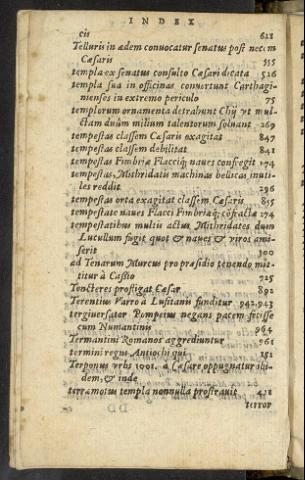 INDEX
cis 621
Telluris in ædem conuocatur senatus post necem
Cæsaris 555
templa ex senatus consulto Cæsari dicata 526
templa sua in officinas conuertunt Carthagi-
nenses in extremo periculo 75
templorum ornamenta detrahunt Chij vt mul-
ctam duûm milium talentorum soluant 269
tempestas classem Cæsaris exagitat 847
tempestas classem debilitat 841
tempestas Fimbriæ Flacciq́; naues confregit 274
tempestas, Mithridatis machinas bellicas inuti-
les reddit 296
tempestas orta exagitat classem Cæsaris 855
tempestate naues Flacci Fimbriæq́; cōfractæ 274
tempestatibus multis actus Mithridates dum
Lucullum fugit quot & naues & viros ami-
serit 300
ad Tenarum Murcus pro præsidio tenendo mit-
titur à Cassio 725
Toncteres profligat Cæsar 892
Terentius Varro à Lusitanis funditur 942.943
tergiuersator Pompeius negans pacem fecisse
cum Numantinis 964
Termantini Romanos aggrediuntur 961
termini regni Antiochi qui 151
Terponus vrbs 1001. a Cæsare oppugnatur ibi-
dem, & inde
terræmotus templa nonnulla prostrauit 421
terror